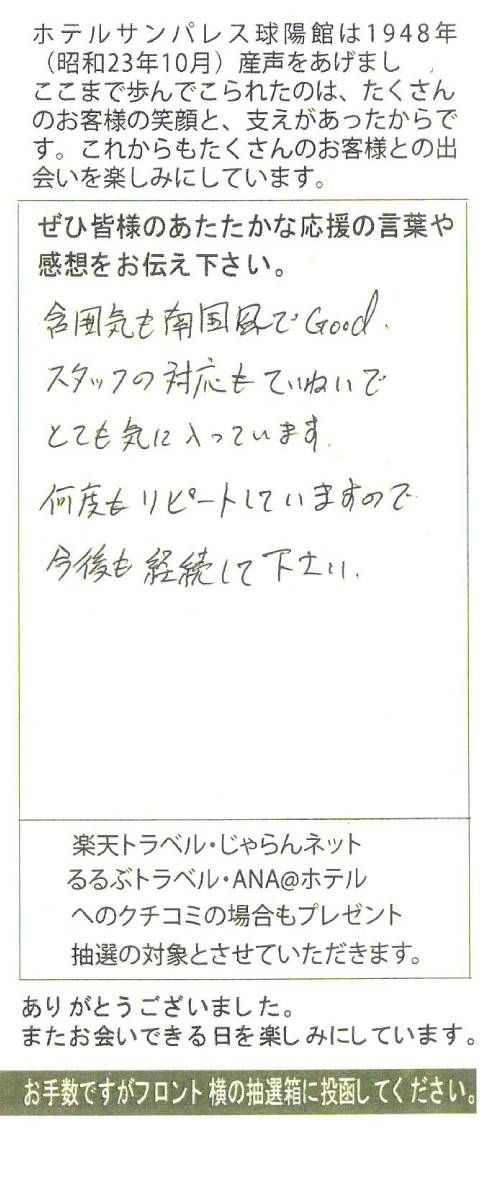 ホテルサンパレス球陽館は1948年
（昭和23年10月）産声をあげまし
ここまで歩んでこられたのは、たくさん
のお客様の笑顔と、支えがあったからで
す。これからもたくさんのお客様との出
会いを楽しみにしています。
ぜひ皆様のあたたかな応援の言葉や
感想をお伝え下さい。
雰囲気も南国風でGood.
スタッフの対応もていねいで
とても気に入っています.
何度もリピートしていますので
今後も経続して下さい.
楽天トラベル・じゃらんネット
るるぶトラベル・ANA@ホテル
へのクチコミの場合もプレゼント
抽選の対象とさせていただきます。
ありがとうございました。
またお会いできる日を楽しみにしています。
お手数ですがフロント横の抽選箱に投函してください。